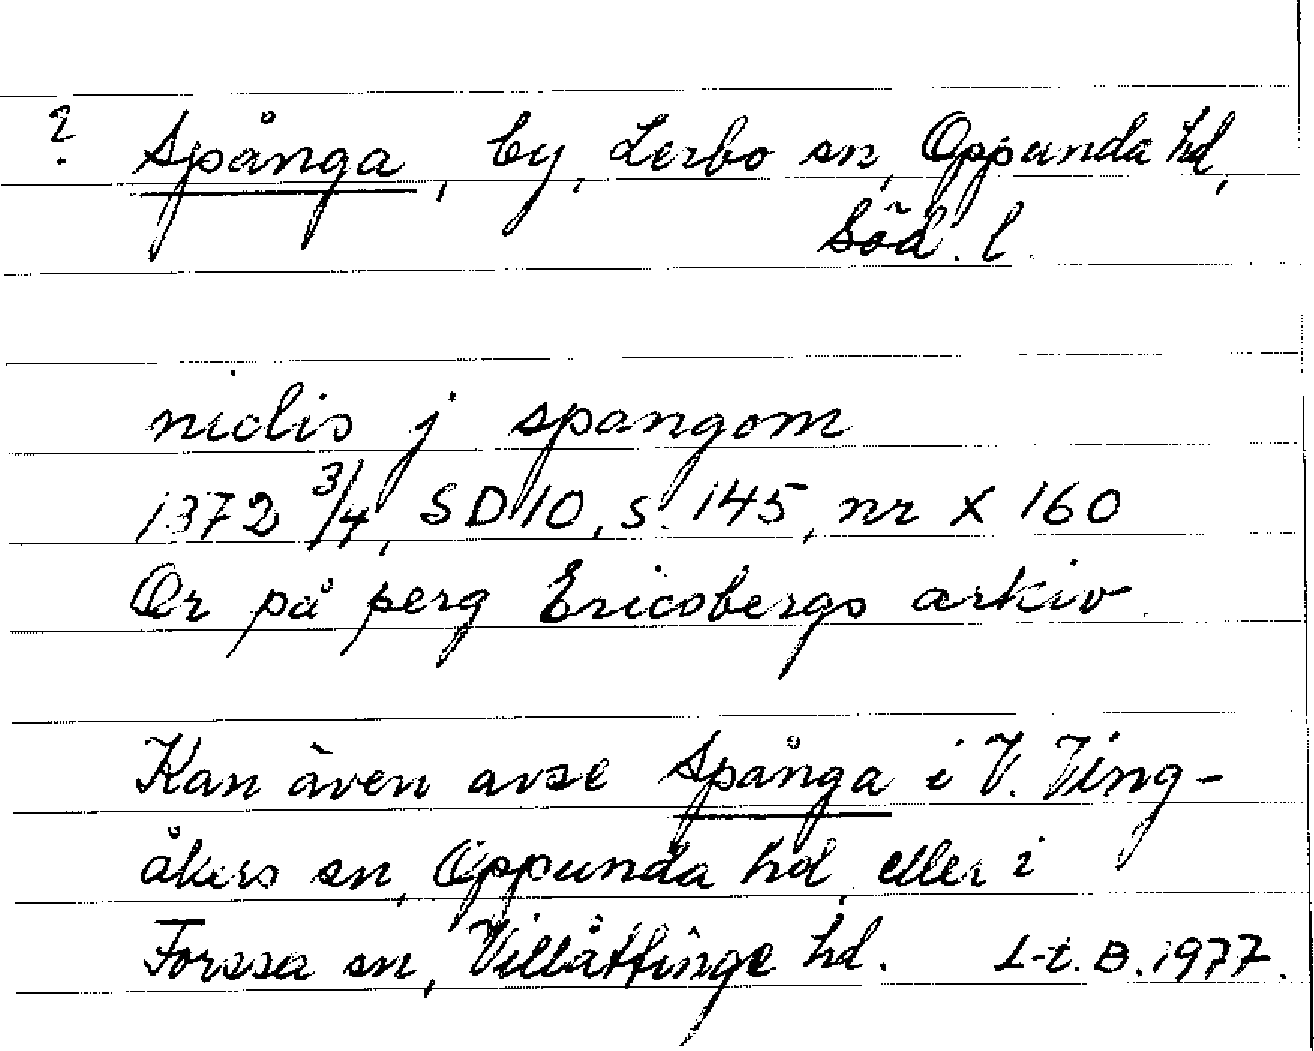 ? Spånga, by, Lerbo sn, Oppunda hd,
Söd. l.
niclis j spangom
1372 3/4, SD 10, s. 145, nr X 160
Or på perg Ericsbergs arkiv
Kan även avse Spånga i V. Ving-
åkers sn, Oppunda hd eller i
Forssa sn, Villåttinge hd. L-t. B. 1977.